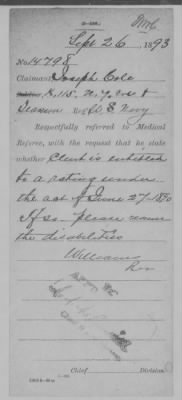 Sept 26, 1893
No. 14798
Claimant Joseph Cole
K. 115. N.Y. Vol &
Seaman U.S. Navy
Respectfully referred to Medical
Referee, with the request that he state
whether Clmt is entitled
to a rating under
the act of June 27-1890
If so please name
the disabilities
Williams
Rev
Chief Division.